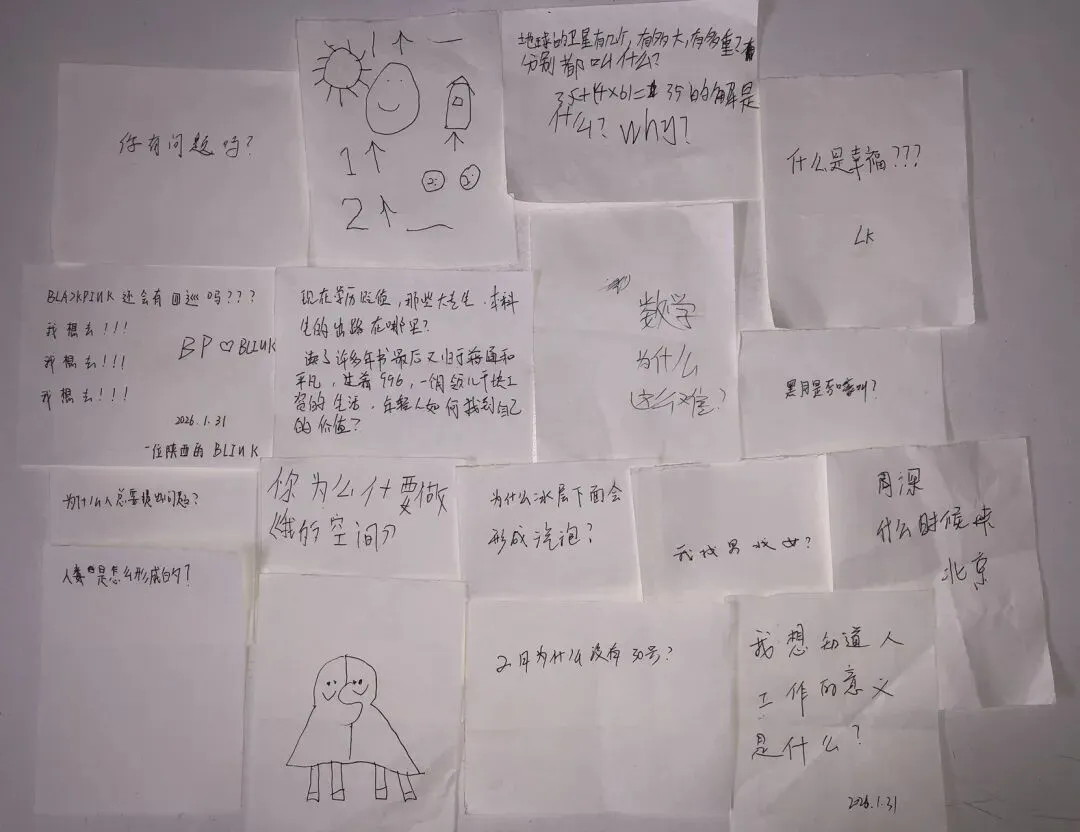 你有问题吗？
1 ↑ —
1 ↑
2 ↑ —
地球的卫星有几个，有多大，有多重？
分别都叫什么？
35+14×61= 35的解是
什么？why?
什么是幸福？？？
LK
BLACKPINK 还会有回巡吗？？？
我想去！！！
我想去！！！
我想去！！！
BP♡BLINK
2026.1.31
一位陕西的 BLINK
现在学历贬值，那些大专生、本科
生的出路在哪里？
读了许多年书最后又归于普通和
平凡，过着996，一个月领几千块工
资的生活，年轻人如何找到自己
的价值？
数学
为什么
这么难？
为什么人总要提出问题？
你为么什要做
《我的空间》
为什么冰层下面会
形成汽泡？
我找男找女？
周深
什么时候来
北京
人类是怎么形成的？
2月为什么没有30号？
我想知道人
工作的意义
是什么？
2026.1.31